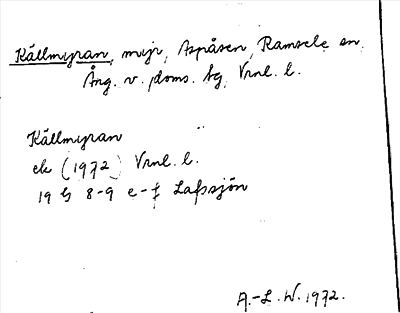 Källmyran, myr, Aspåsen, Ramsele sn.
Ång. v. doms. bg, Vrnl. l.
Källmyran
ek (1972) Vrnl. l.
19 G 8-9 e-f Lafssjön
A.-L. W. 1972.